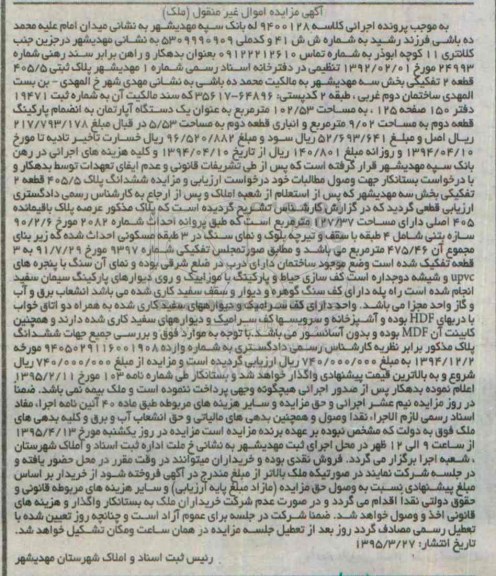 آگهی مزایده اموال غیر منقول (ملک)
به موجب پرونده اجرائی کلاسه ۹۴۰۰۱۲۸ له بانک سپه مهدیشهر به نشانی میدان امام علیه محمد
ده باشی فرزند رشید به شماره ش ش ۴۱ و کدملی ۵۳۰۹۹۹۰۹۰۹ به نشانی مهدیشهر درجزین جنب
کلانتری ۱۱ کوچه ابوذر به شماره تماس ۰۹۱۲۲۳۱۲۶۱۰ بعنوان بدهکار و راهن برابر سند رهنی شماره
۲۴۹۹۳ مورخ ۱۳۹۲/۰۲/۰۱ تنظیمی در دفترخانه اسناد رسمی شماره ۱ مهدیشهر پلاک ثبتی ۴۰۵/۵
قطعه ۲ تفکیکی بخش سه مهدیشهر به مالکیت محمد ده باشی به نشانی مهدی شهر خ المهدی - بن بست
المهدی ساختمان دوم غربی، طبقه ۲ کدپستی: ۶۴۸۹۶-۳۵۶۱۷ که سند مالکیت آن به شماره ثبت ۱۹۴۷۱
دفتر ۱۵۰ صفحه ۱۲۵، به مساحت ۱۰۲/۵۳ مترمربع به عنوان یک دستگاه آپارتمان به انضمام پارکینگ
قطعه دوم به مساحت ۹/۰۲ مترمربع و انباری قطعه دوم به مساحت ۵/۵۳ در قبال مبلغ ۲۱۷/۷۹۳/۱۷۸
ریال اصل و مبلغ ۵۲/۶۹۳/۶۴۱ ریال سود و مبلغ ۹۶/۵۲۰/۸۸۲ ریال خسارت تأخیر تادیه تا مورخ
۱۳۹۴/۰۴/۱۰ و روزانه مبلغ ۱۴۰/۸۰۱ ریال از تاریخ ۱۳۹۴/۰۴/۱۰ و کلیه هزینه های اجرائی در رهن
بانک سپه مهدیشهر قرار گرفته است که پس از طی تشریفات قانونی و عدم ایفای تعهدات توسط بدهکار و
با درخواست بستانکار جهت وصول مطالبات خود درخواست ارزیابی و مزایده ششدانگ پلاک ۴۰۵/۵ قطعه ۲
تفکیکی بخش سه مهدیشهر که پس از استعلام از شعبه املاک و پس از ارجاع به کارشناس رسمی دادگستری
ارزیابی قطعی گردید که در گزارش کارشناس تشریح گردیده است که پلاک مذکور عرصه پلاک باقیمانده
۴۰۵ اصلی دارای مساحت ۱۲۷/۳۷ مترمربع است که طبق پروانه احداث شماره ۲۰۸۲ مورخ ۹۰/۲/۶
سازه بتنی شامل ۴ طبقه با سقف و تیرچه بلوک و نمای سنگ در ۳ طبقه مسکونی احداث شده که زیر بنای
مجموع آن ۴۷۵/۴۶ مترمربع می باشد و مطابق صورتمجلس تفکیکی شماره ۹۳۹۷ مورخ ۹۱/۷/۲۹ به ۳
قطعه تفکیک شده است وضع موجود ساختمان دارای درب در ضلع شرقی بوده و نمای آن سنگ با پنجره های
upvc و شیشه دوجداره است کف سازی حیاط و پارکینگ با موزاییک و روی دیوارهای پارکینگ سیمان سفید
انجام شده است راه پله دارای کف سنگ گوهره و دیوار و سقف سفید کاری شده می باشد انشعاب برق و آب
و گاز واحد مجزا می باشد. واحد دارای کف سرامیک و دیوارهای سفید کاری شده به همراه دو اتاق خواب
با دربهای HDF بوده و آشپزخانه و سرویسها کف سرامیک و دیوارهای سفید کاری شده دارند و همچنین
کابینت آن MDF بوده و بدون آسانسور می باشد. با توجه به موارد فوق و بررسی جمیع جهات ششدانگ
پلاک مذکور برابر نظریه کارشناس رسمی دادگستری به شماره وارده مورخه
۱۳۹۴/۱۲/۲ به مبلغ ۷۴۰/۰۰۰/۰۰۰ ریال ارزیابی گردیده است و مزایده از مبلغ ۷۴۰/۰۰۰/۰۰۰ ریال
شروع و به بالاترین قیمت پیشنهادی واگذار خواهد شد و بستانکار طی شماره نامه ۱۰۳ مورخ ۱۳۹۵/۲/۱۱
اعلام نموده بدهکار پس از صدور اجرائی هیچگونه وجهی پرداخت ننموده است و ملک بیمه نمی باشد. ضمناً
در روز مزایده نیم عشر اجرائی و حق مزایده و سایر هزینه های مربوطه طبق ماده ۴۰ آئین نامه اجرا، مفاد
اسناد رسمی لازم الاجرا، نقدا وصول و همچنین بدهی های مالیاتی و حق انشعاب آب و برق و کلیه بدهی های
ملک فوق به دولت که مشخص نبوده بر عهده برنده مزایده است مزایده در روز یکشنبه مورخ ۱۳۹۵/۴/۱۳
از ساعت ۹ الی ۱۲ ظهر در محل اجرای ثبت مهدیشهر به نشانی خ ملت اداره ثبت اسناد و املاک شهرستان
، شعبه اجرا برگزار می گردد. فروش نقدی بوده و خریداران میتوانند در وقت مقرر در محل حضور یافته و
در جلسه شرکت نمایند در صورتیکه ملک بالاتر از مبلغ مندرج در آگهی فروخته شود از خریدار بر اساس
مبلغ پیشنهادی نسبت به وصول حق مزایده (مازاد مبلغ پایه ارزیابی) و سایر هزینه های مربوطه قانونی و
حقوق دولتی نقداً اقدام می گردد و در صورت عدم شرکت خریداران ملک به بستانکار واگذار و هزینه های
قانونی اخذ و وصول خواهد شد. ضمناً شرکت در جلسه برای عموم آزاد است و چنانچه روز تعیین شده با
تعطیل رسمی مصادف گردد روز بعد از تعطیل جلسه مزایده در همان ساعت ومکان تشکیل خواهد شد.
تاریخ انتشار: ۱۳۹۵/۳/۲۷
رئیس ثبت اسناد و املاک شهرستان مهدیشهر